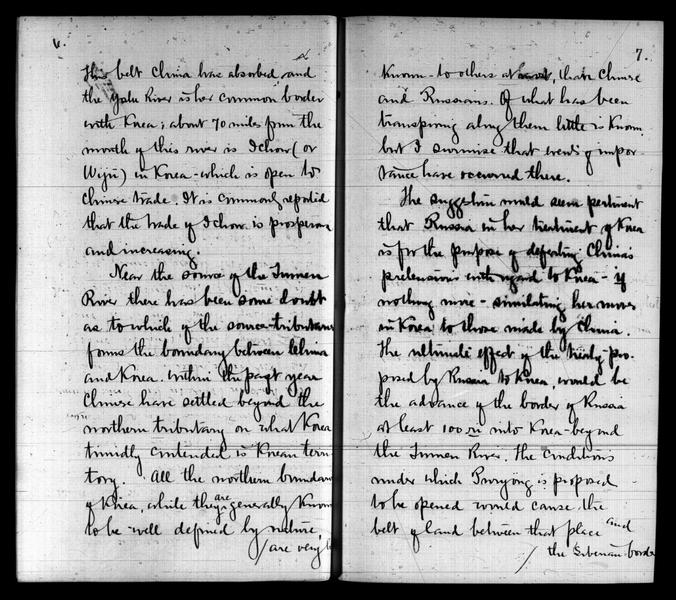 6.
This belt China have absorbed and
the Yalu River is her common border
with Korea; about 70 miles from the
mouth of this river is Ichow (or
Wiju) in Korea - which is open to
Chinese trade. It is commonly reported
that the trade of Ichow is prosperous
and increasing.
Near the source of the Tumen
River there has been some doubt
as to which of the source-tributaries
forms the boundary between China
and Korea. Within the past year
Chinese have settled beyond the
northern tributary on what Korea
timidly contended is Korean terri-
tory. All the northern boundary
of Korea, while they are generally known
to be well defined by nature,
/ are very
7.
known - to others at, than Chinese
and Russians. Of what has been
transpiring along them little is known
but I surmise that events of impor-
tance have occurred there.
The suggestion would seem pertinent
that Russia in her treatment of Korea
is for the purpose of defeating China's
pretensions with regard to Korea - if
nothing more - simulating her moves
in Korea to those made by China.
The ultimate effect of the treaty-pro-
posed by Russia to Korea, would be
the advance of the border of Russia
at least 100 ri into Korea - beyond
the Tumen River. The conditions
under which Puryong is proposed
to be opened would cause the
belt of land between that place and
/ the Siberian border